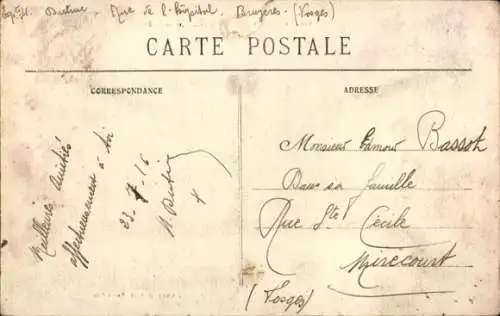 Rue de l'hôpital. Bruyères. (Vosges)
CARTE POSTALE
CORRESPONDANCE
Meilleures amitiés
affectueusement à toi
23-7-16
ADRESSE
Monsieur Edmond Bassot
Dans sa famille
Rue Ste Cécile
Mirecourt
(Vosges)